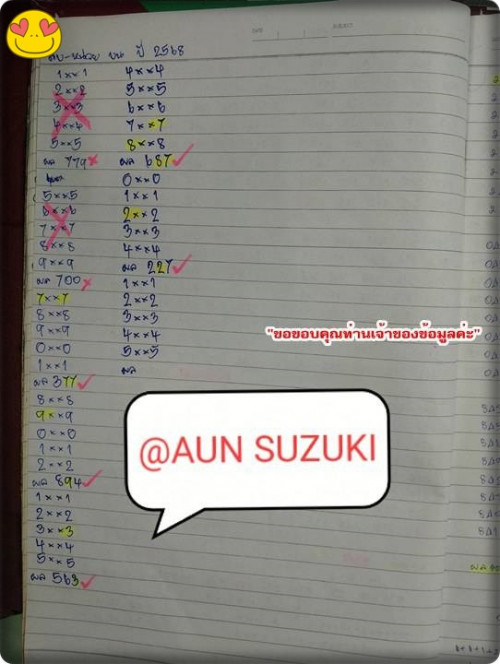 สิบ-หน่วย บน ปี 2568
1××1
2××2
3××3
4××4
5××5
ผล 779×
5××5
6××6
7××7
8××8
9××9
ผล 700×
7××7
8××8
9××9
0××0
1××1
ผล 377✓
8××8
9××9
0××0
1××1
2××2
ผล 894✓
1××1
2××2
3××3
4××4
5××5
ผล 563✓
4××4
5××5
6××6
7××7
8××8
ผล 687✓
0××0
1××1
2××2
3××3
4××4
ผล 227✓
1××1
2××2
3××3
4××4
5××5
ผล
"ขอขอบคุณท่านเจ้าของข้อมูลค่ะ"
@AUN SUZUKI